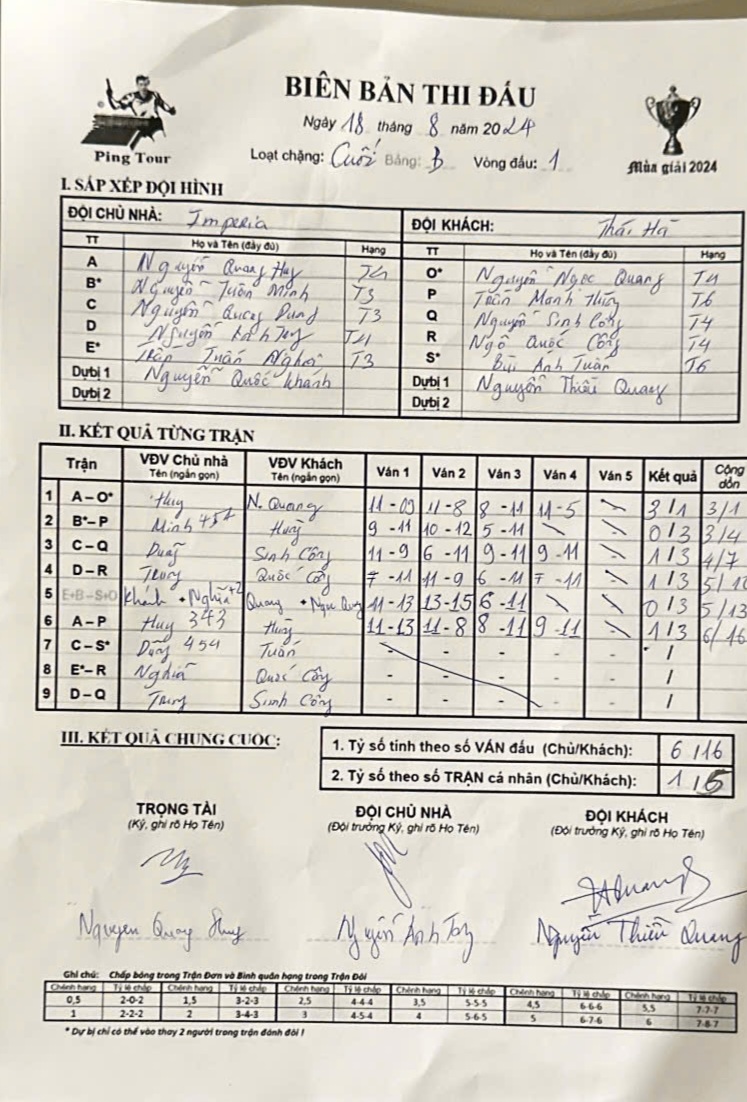 BIÊN BẢN THI ĐẤU
Ngày 18 tháng 8 năm 2024
Ping Tour
Loạt chặng: Cuối Bảng: B Vòng đấu: 1
Mùa giải 2024
I. SẮP XẾP ĐỘI HÌNH
ĐỘI CHỦ NHÀ: Imperia ĐỘI KHÁCH: Thái Hà
TT Họ và Tên (đầy đủ) Hạng TT Họ và Tên (đầy đủ) Hạng
A Nguyễn Quang Huy T4 O* Nguyễn Ngọc Quang T4
B* Nguyễn Tuấn Minh T3 P Trần Mạnh Hùng T6
C Nguyễn Quang Dung T3 Q Nguyễn Sinh Công T4
D Nguyễn T4 R Ngô Quốc Công T4
E* Trần Tuấn Nghĩa T3 S* Bùi Anh Tuấn T6
Dựbị 1 Nguyễn Quốc Khánh Dựbị 1 Nguyễn Thiều Quang
Dựbị 2 Dựbị 2
II. KẾT QUẢ TỪNG TRẬN
Trận VĐV Chủ nhà VĐV Khách Ván 1 Ván 2 Ván 3 Ván 4 Ván 5 Kết quả Cộng dồn
Tên (ngắn gọn) Tên (ngắn gọn)
1 A – O* Huy N. Quang 11 - 09 11 - 8 8 - 11 11 - 5 3 / 1 3/1
2 B* – P Minh 454 Hùng 9 - 11 10 - 12 5 - 11 0 / 3 3/4
3 C – Q Dung Sinh Công 11 - 9 6 - 11 9 - 11 9 - 11 1 / 3 4/7
4 D – R Trung Quốc Công 7 - 11 11 - 9 6 - 11 7 - 11 1 / 3 5/10
5 E+B – S+O Khánh + Nghĩa +2 Quang + Ngọc Quang 11 - 13 13 - 15 6 - 11 0 / 3 5/13
6 A – P Huy 343 Hùng 11 - 13 11 - 8 8 - 11 9 - 11 1 / 3 6/16
7 C – S* Dũng 454 Tuấn - - - - - /
8 E* – R Nghĩa Quốc Công - - - - - /
9 D – Q Trung Sinh Công - - - - - /
III. KẾT QUẢ CHUNG CUỘC:
1. Tỷ số tính theo số VÁN đấu (Chủ/Khách): 6 / 16
2. Tỷ số theo số TRẬN cá nhân (Chủ/Khách): 1 / 5
TRỌNG TÀI ĐỘI CHỦ NHÀ ĐỘI KHÁCH
(Ký, ghi rõ Họ Tên) (Đội trưởng Ký, ghi rõ Họ Tên) (Đội trưởng Ký, ghi rõ Họ Tên)
Nguyen Quang Huy Nguyễn Anh Nguyễn Thiều Quang
Ghi chú: Chấp bóng trong Trận Đơn và Bình quân hạng trong Trận Đôi
Chênh hạng Tỷ lệ chấp Chênh hạng Tỷ lệ chấp Chênh hạng Tỷ lệ chấp Chênh hạng Tỷ lệ chấp Chênh hạng Tỷ lệ chấp Chênh hạng Tỷ lệ chấp
0,5 2-0-2 1,5 3-2-3 2,5 4-4-4 3,5 5-5-5 4,5 6-6-6 5,5 7-7-7
1 2-2-2 2 3-4-3 3 4-5-4 4 5-6-5 5 6-7-6 6 7-8-7
* Dự bị chỉ có thể vào thay 2 người trong trận đánh đôi !